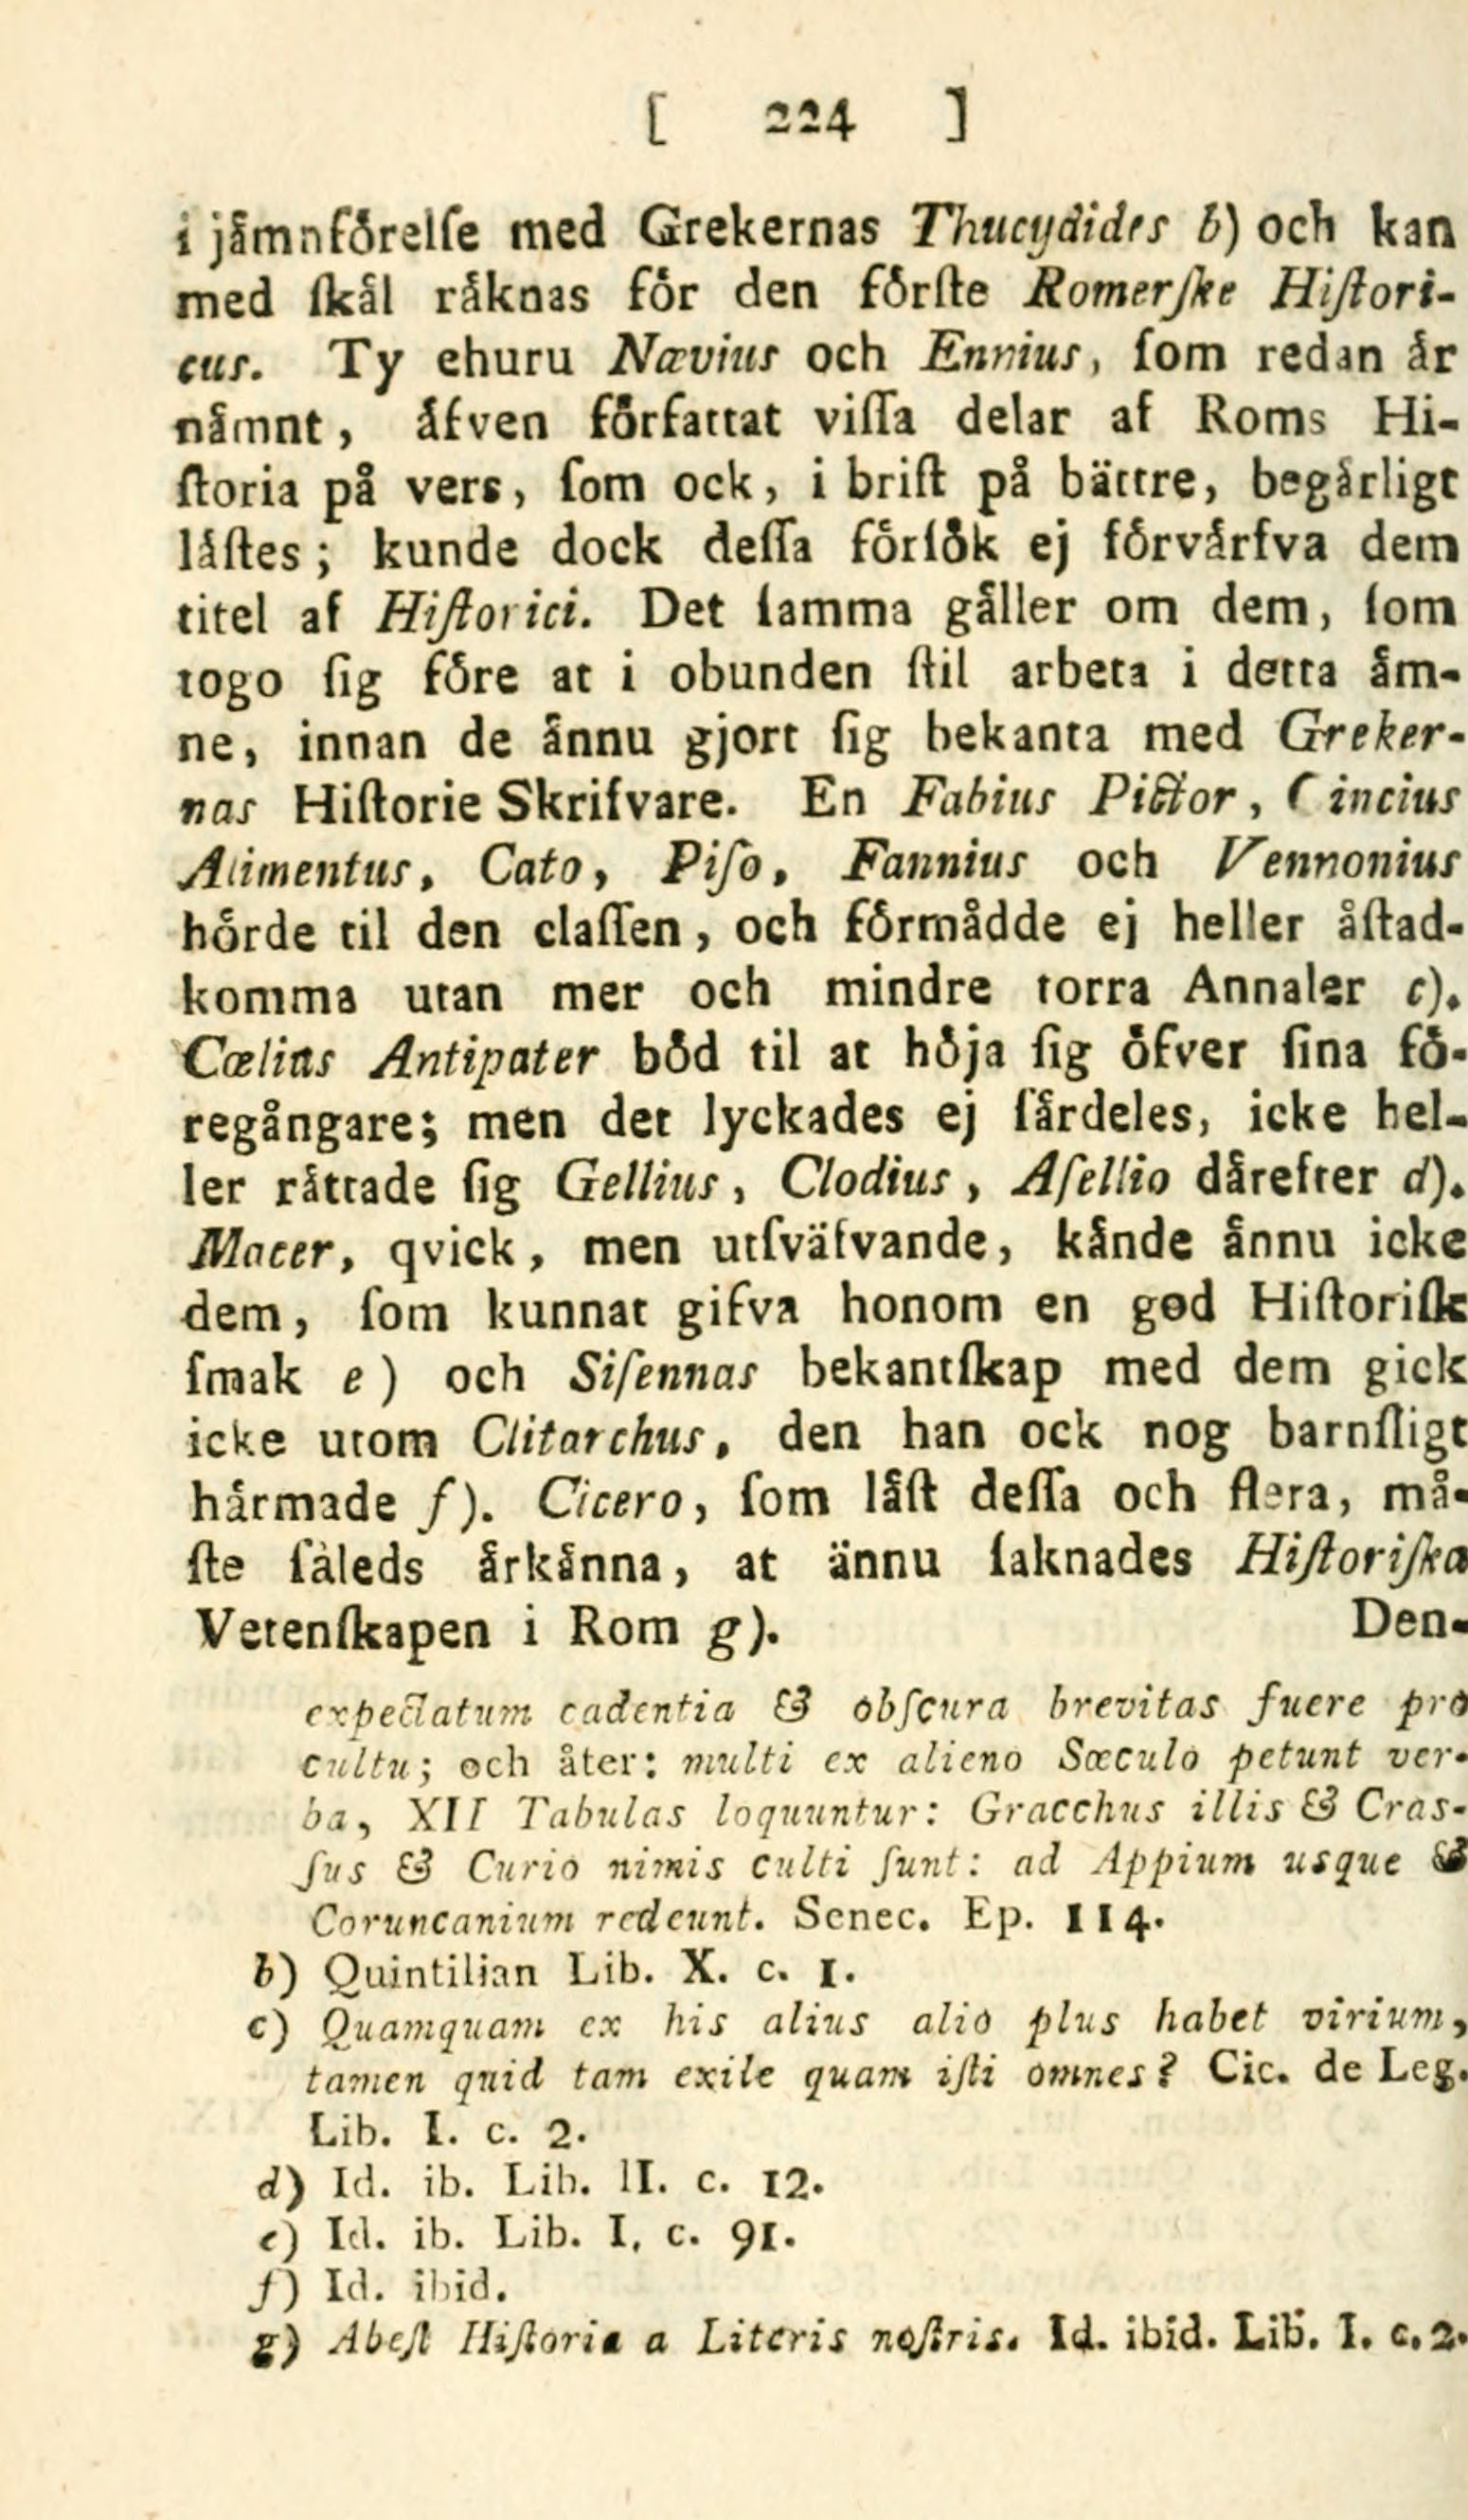 [ 224 ]
i jämnförelſe med Grekernas Thucydides b) och kan
med ſkäl räknas för den förſte Romerſke Hiſtori-
cus. Ty ehuru Nævius och Ennius, ſom redan är
nämnt, äfven författat viſſa delar af Roms Hi-
ſtoria på vers, ſom ock, i briſt på bättre, begärligt
läſtes; kunde dock deſſa förſök ej förvärfva dem
titel af Hiſtorici. Det ſamma gäller om dem, ſom
togo ſig före at i obunden ſtil arbeta i detta äm-
ne, innan de ännu gjort ſig bekanta med Greker-
nas Hiſtorie Skrifvare. En Fabius Pictor, Cincius
Alimentus, Cato, Piſo, Fannius och Vennonius
hörde til den claſſen, och förmådde ej heller åſtad-
komma utan mer och mindre torra Annaler c).
Cœlius Antipater böd til at höja ſig öfver ſina fö-
regångare; men det lyckades ej ſärdeles, icke hel-
ler rättade ſig Gellius, Clodius, Aſellio därefter d).
Macer, qvick, men utſväfvande, kände ännu icke
dem, ſom kunnat gifva honom en god Hiſtoriſk
ſmak e) och Siſennas bekantſkap med dem gick
icke utom Clitarchus, den han ock nog barnſligt
härmade f). Cicero, ſom läſt deſſa och flera, må-
ſte ſåleds ärkänna, at ännu ſaknades Hiſtoriſka
Vetenſkapen i Rom g). Den-
expectatum cadentia & obſcura brevitas fuere pro
cultu; och åter: multi ex alieno Sæculo petunt ver-
ba, XII Tabulas loquuntur: Gracchus illis & Cras-
ſus & Curio nimis culti ſunt: ad Appium usque &
Coruncanium redeunt. Senec. Ep. 114.
b) Quintilian Lib. X. c. 1.
c) Quamquam ex his alius alio plus habet virium,
tamen quid tam exile quam iſti omnes? Cic. de Leg.
Lib. I. c. 2.
d) Id. ib. Lib. II. c. 12.
e) Id. ib. Lib. I, c. 91.
f) Id. ibid.
g) Abeſt Hiſtoria a Literis noſtris. Id. ibid. Lib. I. c. 2.